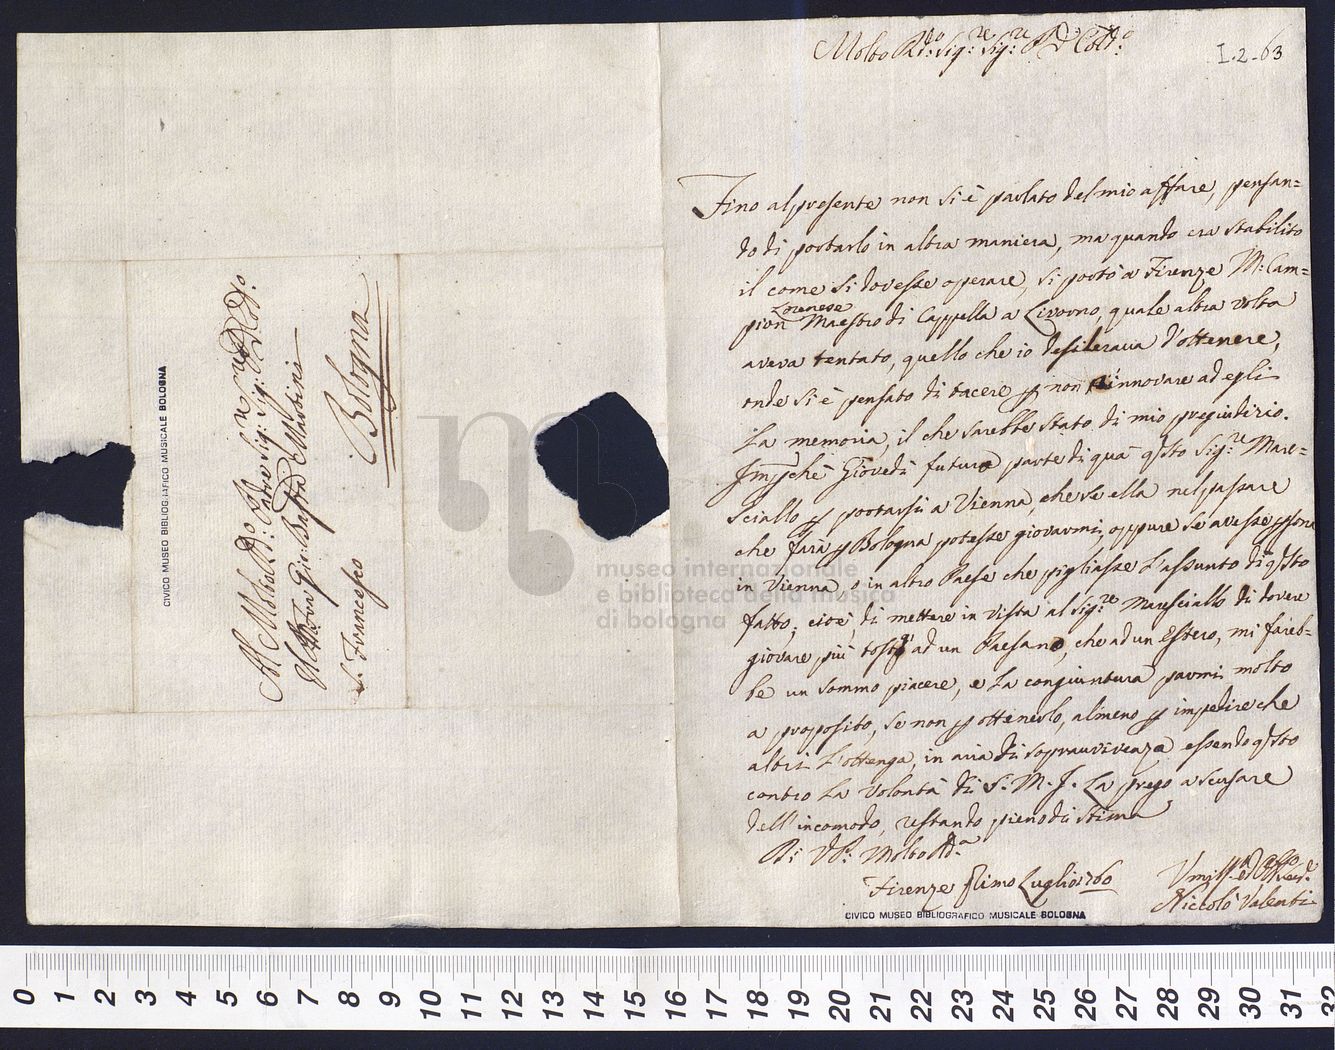 Molto Rdo: Sigre: Sigre: Pd Coldo:
I.2-63
Fino al presente non si è parlato del mio affare, pensan=
do di portarlo in altra maniera, ma quando era stabilito
il come si dovesse operare, si portò a Firenze M: Cam=
Lorenese
pion Maestro di Cappella a Livorno, quale altra volta
aveva tentato, quello che io desiderava d'ottenere,
onde si è pensato di tacere p non rinnovare ad egli
La memoria, il che sarebbe stato di mio pregiudizio.
Impche Giovedi futuro parte di quà qsto Sigre: Mare=
sciallo p portarsi a Vienna, che se ella nel passare
che farà p Bologna potesse giovarmi, oppure se avesse psona
in Vienna, o in altro Paese che pigliasse L'assunto di qsto
fatto, cioè, di mettere in vista al Sigre: Maresciallo di dovere
giovare più tosto ad un Paesano, che ad un Estero, mi fareb=
be un sommo piacere, e La congiuntura parmi molto
a proposito, se non p ottenerlo, almeno p impedire che
altri L'ottenga, in aria di sopravivenza essendo qsto
contro La volontà di S. M. I. La prego a scusare
dell'incomodo, restando pieno di stima
Di VP: Molto Rda
Firenze primo Luglio 1760
Niccolò Valenti
CIVICO MUSEO BIBLIOGRAFICO MUSICALE BOLOGNA
Al Molto Rdo: Padre Sigre: Sigre:
Fra Gio: Batta Martini
S. Francesco
Bologna
CIVICO MUSEO BIBLIOGRAFICO MUSICALE BOLOGNA
museo internazionale
e biblioteca della musica
di bologna
0 1 2 3 4 5 6 7 8 9 10 11 12 13 14 15 16 17 18 19 20 21 22 23 24 25 26 27 28 29 30 31 32